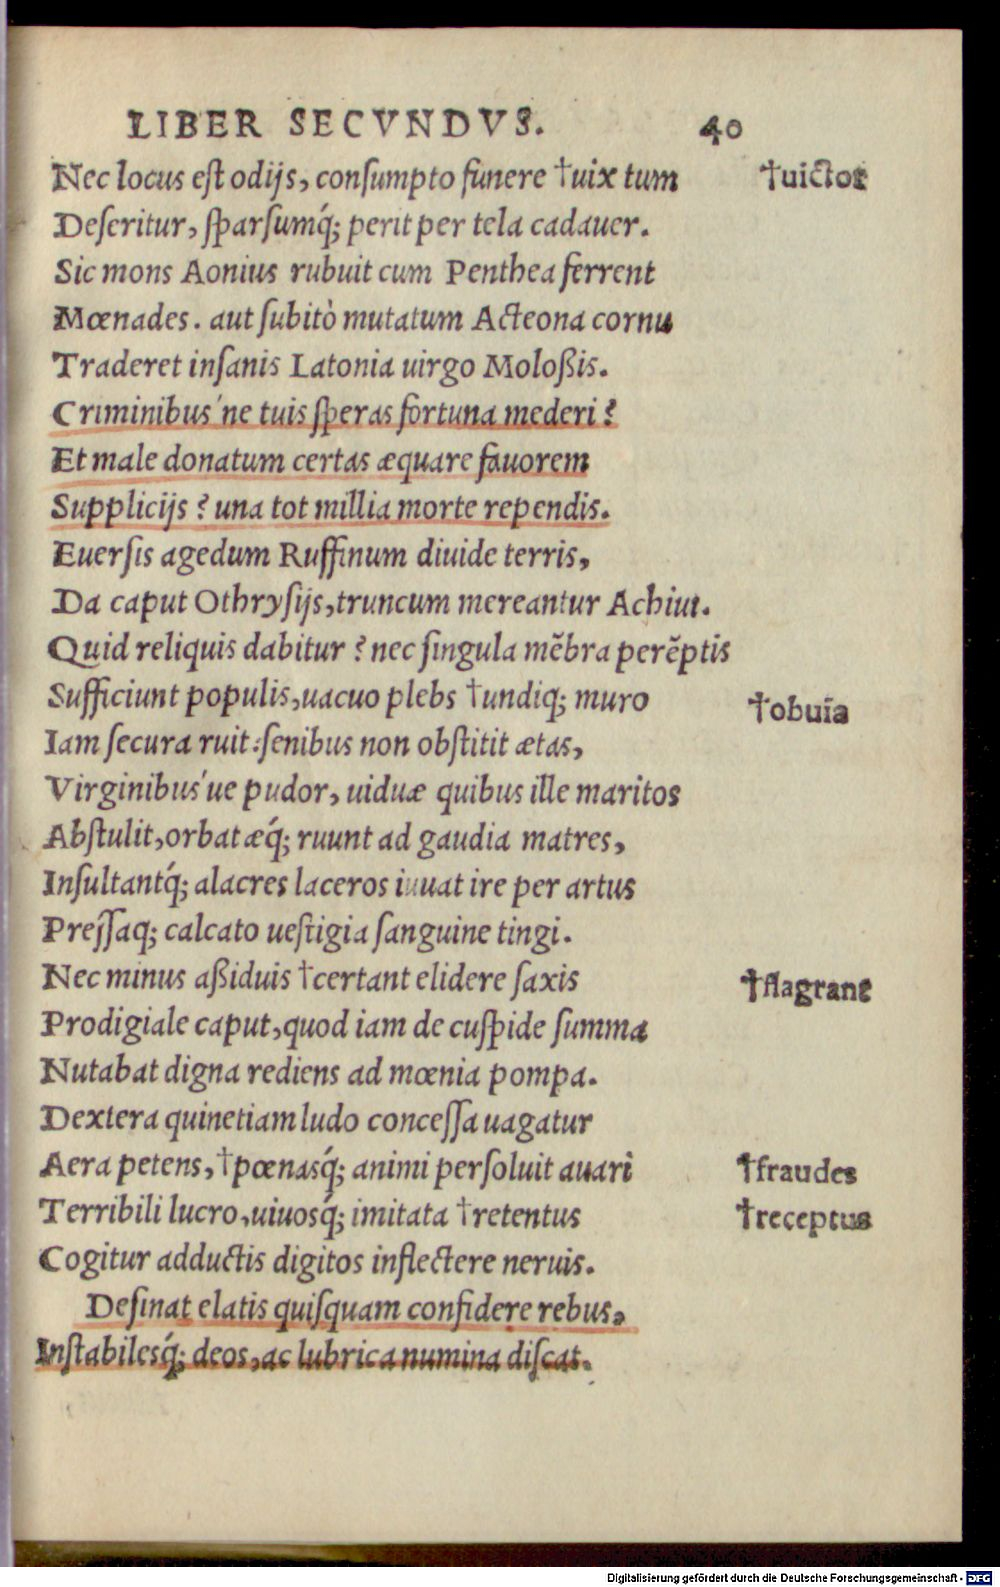 LIBER SECVNDVS. 40
Nec locus eſt odijs, conſumpto funere †uix tum †uictos
Deſeritur, ſparſumq́; perit per tela cadauer.
Sic mons Aonius rubuit cum Penthea ferrent
Mœnades. aut ſubitò mutatum Acteona cornu
Traderet inſanis Latonia uirgo Moloßis.
Criminibus'ne tuis ſperas fortuna mederi?
Et male donatum certas æquare fauorem
Supplicijs? una tot millia morte rependis.
Euerſis agedum Ruffinum diuide terris,
Da caput Othryſijs, truncum mereantur Achiui.
Quid reliquis dabitur? nec ſingula mẽbra perẽptis
Sufficiunt populis, uacuo plebs †undiq; muro †obuia
Iam ſecura ruit: ſenibus non obſtitit ætas,
Virginibus'ue pudor, uiduæ quibus ille maritos
Abſtulit, orbatæq́; ruunt ad gaudia matres,
Inſultantq́; alacres laceros iuuat ire per artus
Preſſaq; calcato ueſtigia ſanguine tingi.
Nec minus aßiduis †certant elidere ſaxis †flagrant
Prodigiale caput, quod iam de cuſpide ſumma
Nutabat digna rediens ad mœnia pompa.
Dextera quinetiam ludo conceſſa uagatur
Aera petens, †pœnasq́; animi perſoluit auari †fraudes
Terribili lucro, uiuosq́; imitata †retentus †receptus
Cogitur adductis digitos inflectere neruis.
Deſinat elatis quiſquam confidere rebus,
Inſtabilesq́; deos, ac lubrica numina diſcat.
Digitalisierung gefördert durch die Deutsche Forschungsgemeinschaft - DFG